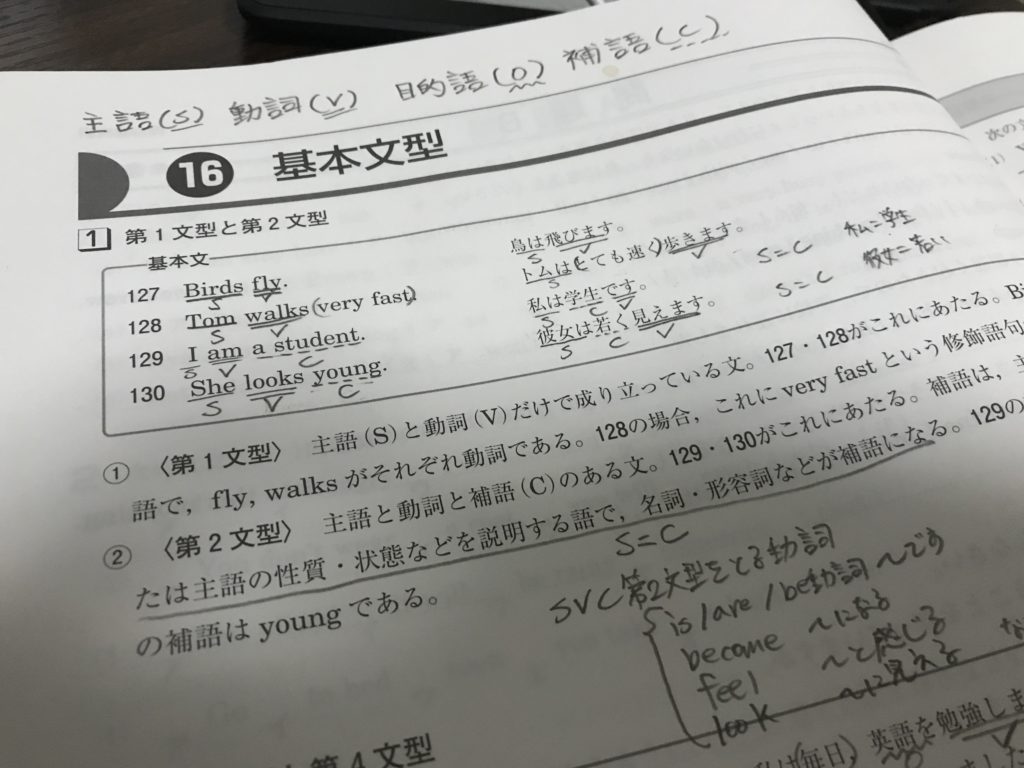 主語(S) 動詞(V) 目的語(O) 補語(C)
16 基本文型
1 第1文型と第2文型
基本文
127 Birds fly. 鳥は飛びます。
S V S V
128 Tom walks (very fast) トムはとても速く歩きます。
S V S V
129 I am a student. 私は学生です。 S=C 私=学生
S V C S C V
130 She looks young. 彼女は若く見えます。 S=C 彼女=若い
S V C S C V
① 〈第1文型〉 主語(S)と動詞(V)だけで成り立っている文。127・128がこれにあたる。Bi
語で, fly, walksがそれぞれ動詞である。128の場合, これにvery fastという修飾語句
② 〈第2文型〉 主語と動詞と補語(C)のある文。129・130がこれにあたる。補語は, 主
たは主語の性質・状態などを説明する語で, 名詞・形容詞などが補語になる。129の
の補語はyoungである。
S=C
SVC 第2文型をとる動詞
is/are/be動詞 〜です
become 〜になる
feel 〜と感じる
look 〜に見える
な
第4文型
私は(毎日)英語を勉強しま
次の